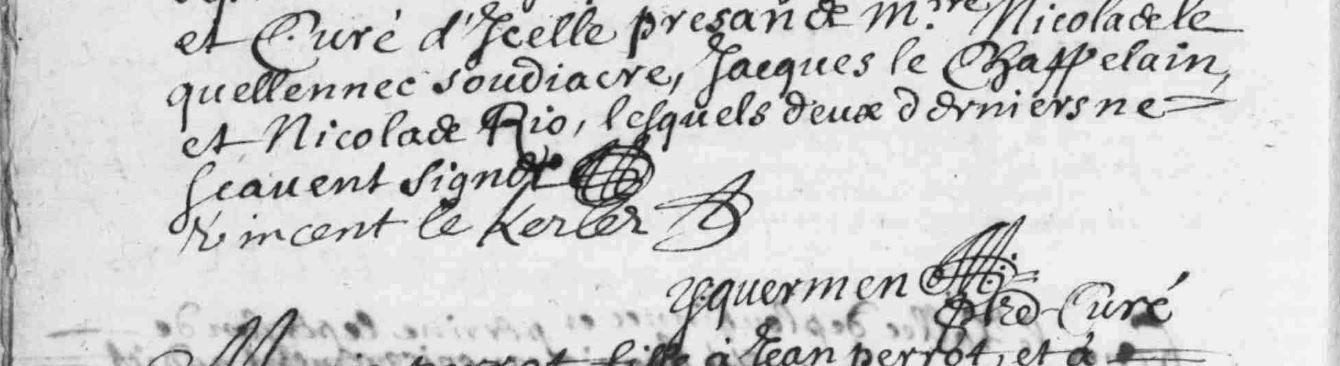 et Curé d'Icelle presan de m.re Nicolade le
quellennec soudiacre, Jacques le Chappelain,
et Nicolade Rio, lesquels deux derniers ne
scauent signer
Vincent le Kerler
y:quermen
Curé
perrot fille à Jean perrot, et à